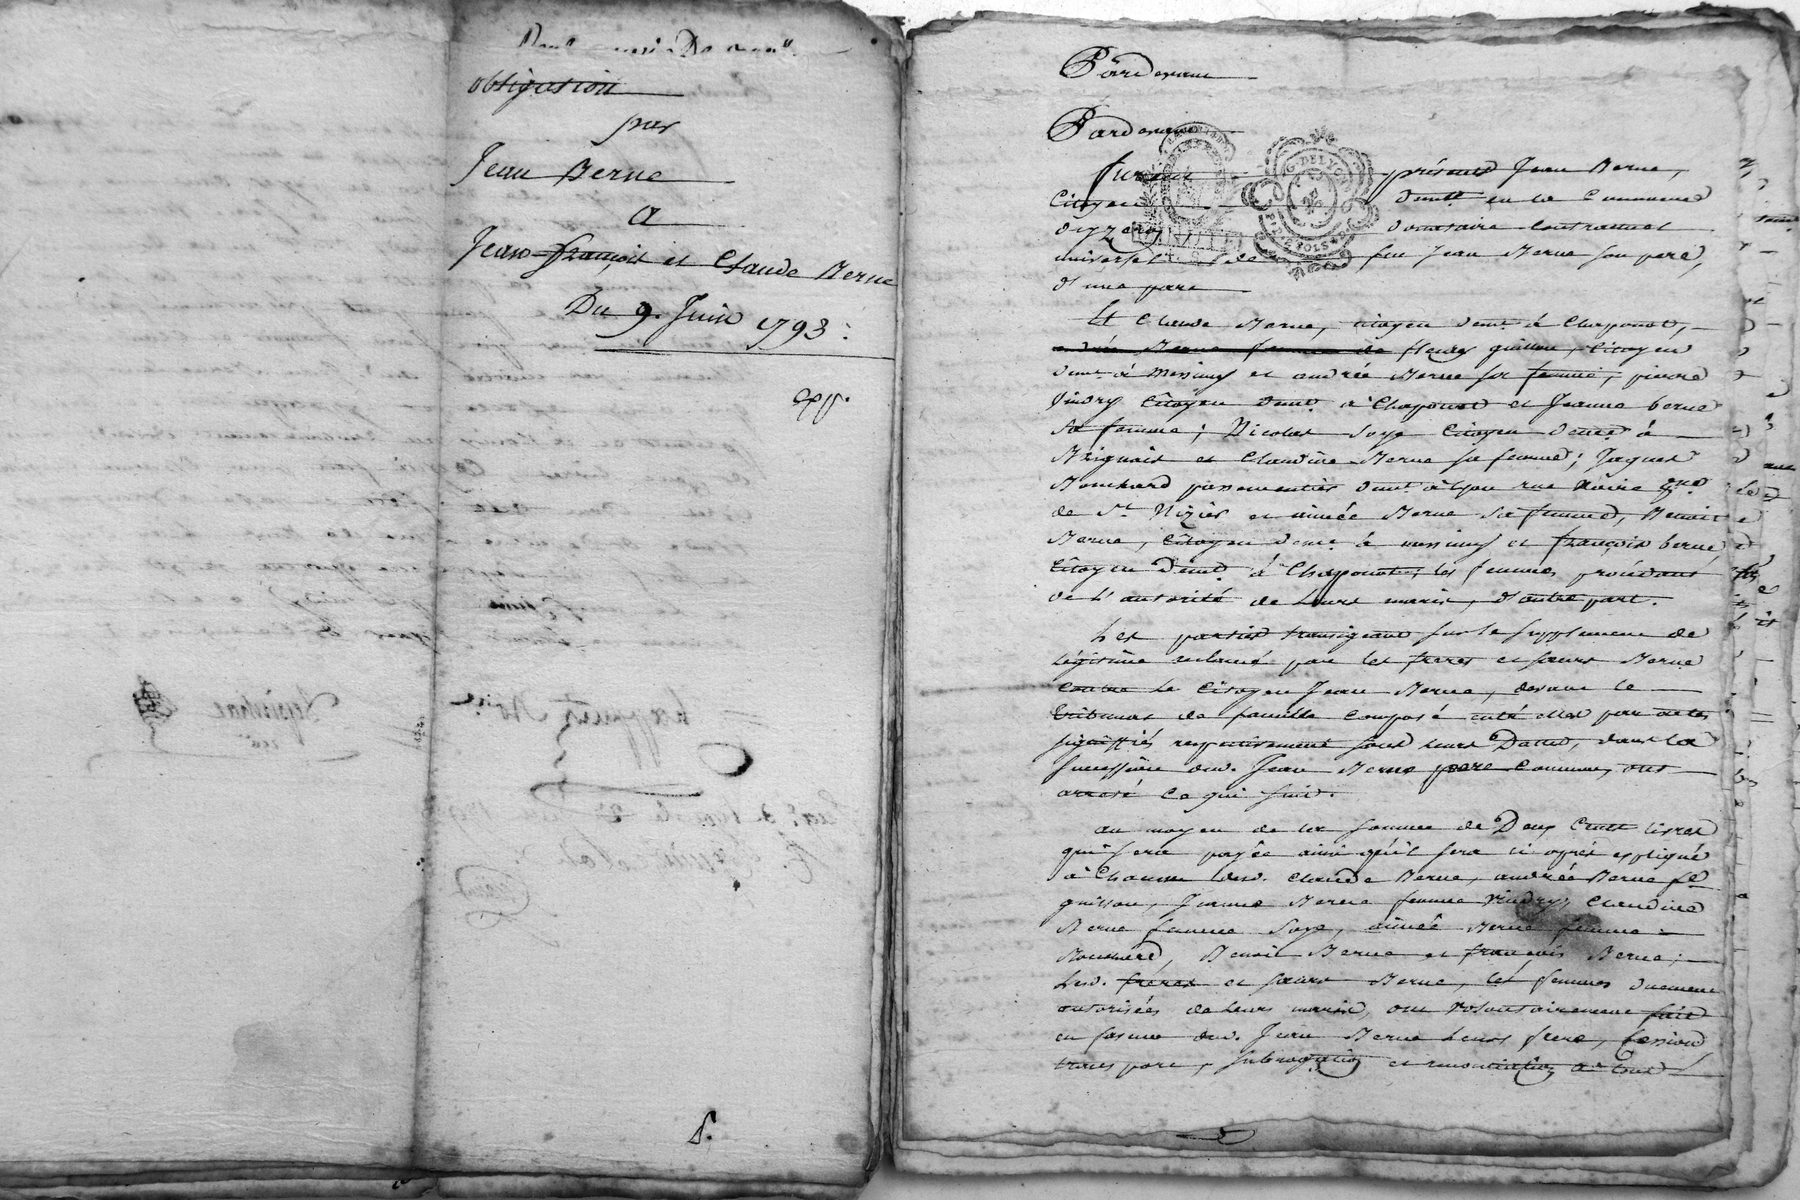 obligation
par
Jean Berne
a
Jean françois et Claude Berne
Du 9. Juin 1793:
exp.
Pardevant
Pardevant
furent présents Jean Berne,
Citoyen demt. en la Commune
donataire Contractuel
universel de feu Jean Berne son pere,
d'une part
Et Claude Berne, citoyen demt. à Chaponost,
andrée Berne femme de fleury guillon, Citoyen
demt. à Messimy et andrée Berne sa femme, pierre
Vindry Citoyen demt. à Chaponost et Jeanne berne
sa femme; Nicolas Soye Citoyen demt. à
Brignais et Claudine Berne sa femme; Jaques
Bouchard passementier demt. à Lyon rue
de St. Nizier et aimée Berne sa femme, Benoit
Berne, Citoyen demt. à messimy et françois berne
Citoyen demt. à Chaponost, les femmes procédant
de l'autorité de leurs maris, d'autre part.
Les parties transigeant sur le supplement de
légitime reclamé par les freres et sœurs Berne
contre le Citoyen Jean Berne, devant le
tribunal de famille composé entre elles par actes
signiffiés respectivement sous leurs Dattes, dans la
succession dud. Jean Berne pere commun, ont
arreté ce qui suit.
au moyen de la somme de Deux Cent livres
qui sera payée ainsi qu'il sera ci après expliqué
à Chacun desd. Claude Berne, andrée Berne fe.
guillon, Jeanne Berne femme Vindry, Claudine
Berne femme Soye, aimée Berne femme
Bouchard, Benoit Berne et françois Berne;
Lesd. freres et sœurs Berne, les femmes duement
autorisées de leurs maris, ont volontairement fait
en faveur dud. Jean Berne leur frere, Cession,
transport, subrogation et renonciation à tous